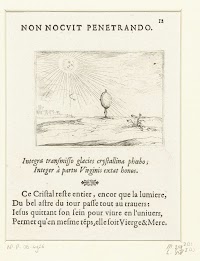 12
NON NOCVIT PENETRANDO.
Integra transmisso glacies crystallina phœbo;
Integer à partu Virginis extat honus.
Ce Cristal reste entier, encor que la lumiere,
Du bel astre du iour passe tout au trauers:
Iesus quittant son sein pour viure en l'vniuers,
Permet qu'en mesme tẽps, elle soit Vierge & Mere.